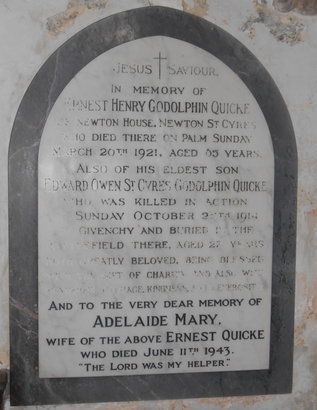 JESUS SAVIOUR.
IN MEMORY OF
ERNEST HENRY GODOLPHIN QUICKE
NEWTON HOUSE, NEWTON ST CYRES
WHO DIED THERE ON PALM SUNDAY
MARCH 20TH 1921, AGED 65 YEARS.
ALSO OF HIS ELDEST SON
EDWARD OWEN ST CYRES GODOLPHIN QUICKE
WHO WAS KILLED IN ACTION
SUNDAY OCTOBER 1914
GIVENCHY AND BURIED IN THE
FIELD THERE, AGED YEARS
GREATLY BELOVED, BEING BLESSED
OF AND ALSO WITH
AND TO THE VERY DEAR MEMORY OF
ADELAIDE MARY,
WIFE OF THE ABOVE ERNEST QUICKE
WHO DIED JUNE 11TH 1943.
"THE LORD WAS MY HELPER".